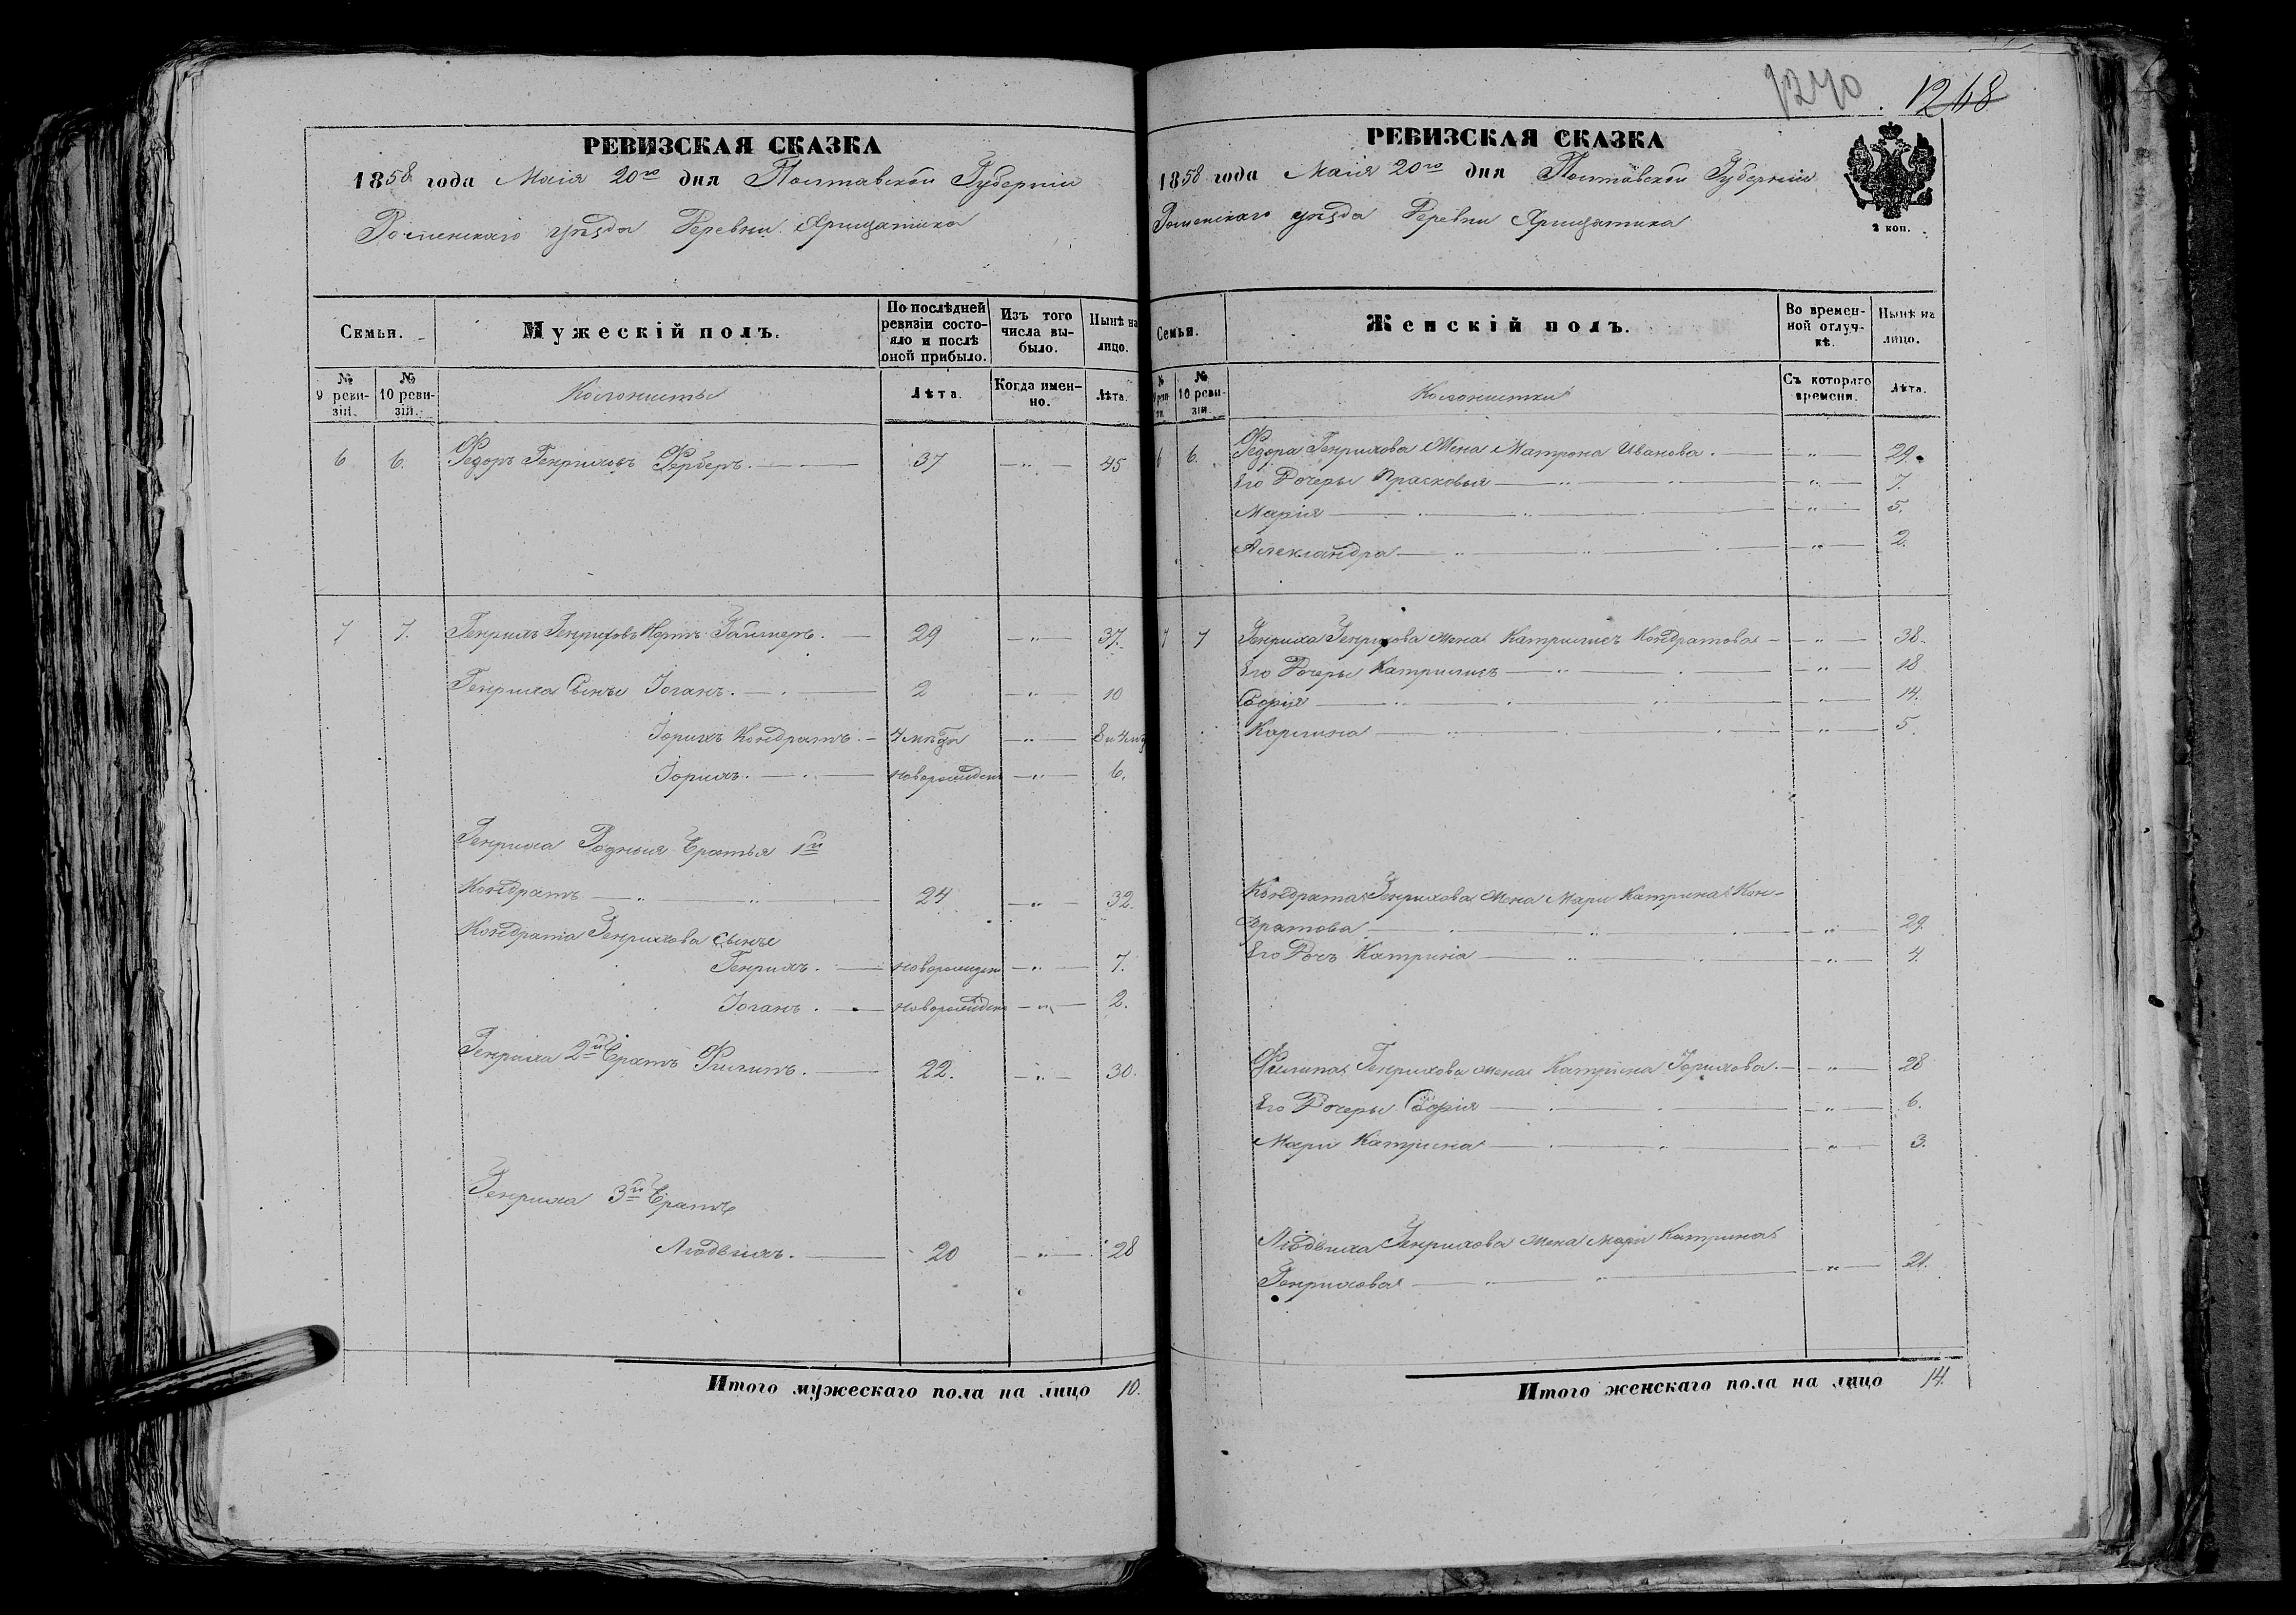 РЕВИЗСКАЯ СКАЗКА
1858 года Маія 20го дня Полтавской Губерніи
Роменскаго уѣзда Деревни
Семьи.
Мужескій полъ.
По послѣдней ревизіи состояло и послѣ оной прибыло.
Изъ того числа выбыло.
Нынѣ на лицо.
№ 9 ревизіи.
№ 10 ревизіи.
Колонисты
Лѣта.
Когда именно.
Лѣта.
6 6. Федоръ Генриховъ Ферберъ. 37 — „ — 45
7 7. Генрихъ Генриховъ 29 — „ — 37.
Генриха Сынъ Іоганъ. 2 — „ — 10
Іорихъ Кондратъ. 4 — „ — 8 и 4
Іорихъ. новорожден — „ — 6.
Генриха Родныя братья 1й
Кондратъ 24 — „ — 32.
Кондрата Генрихова сынъ
Генрихъ. новорожден — „ — 7.
Іоганъ. новорожден — „ — 2.
Генриха 2й братъ Филипъ. 22. — „ — 30.
Генриха 3й братъ
Людвихъ. 20 — „ — 28
Итого мужескаго пола на лицо 10.
1270 1268
РЕВИЗСКАЯ СКАЗКА
1858 года Маія 20го дня Полтавской Губерніи
Роменскаго уѣзда Деревни
2 коп.
Семьи.
Женскій полъ.
Во временной отлучкѣ.
Нынѣ на лицо.
№ 9 ревизіи
№ 10 ревизіи
Колонистки
Съ котораго времени.
Лѣта.
6 6. Федора Генрихова Жена Матрона Иванова. — „ — 29.
Его Дочеры Прасковья — „ — 7.
Марія — „ — 5.
Александра — „ — 2.
7 7 Генриха Генрихова жена Катрилисъ Кондратова — „ — 38.
Его Дочеры Катрилисъ — „ — 18
Софія — „ — 14.
Карлина — „ — 5.
Кондрата Генрихова жена Мари Катрина Кон-
дратова — „ — 29.
Его Дочь Катрина — „ — 4.
Филипа Генрихова жена Катрина Іорихова. — „ — 28
Его Дочеры Софія — „ — 6.
Мари Катрина — „ — 3.
Людвиха Генрихова жена Мари Катрина
Генрихова — „ — 21.
Итого женскаго пола на лицо 14.